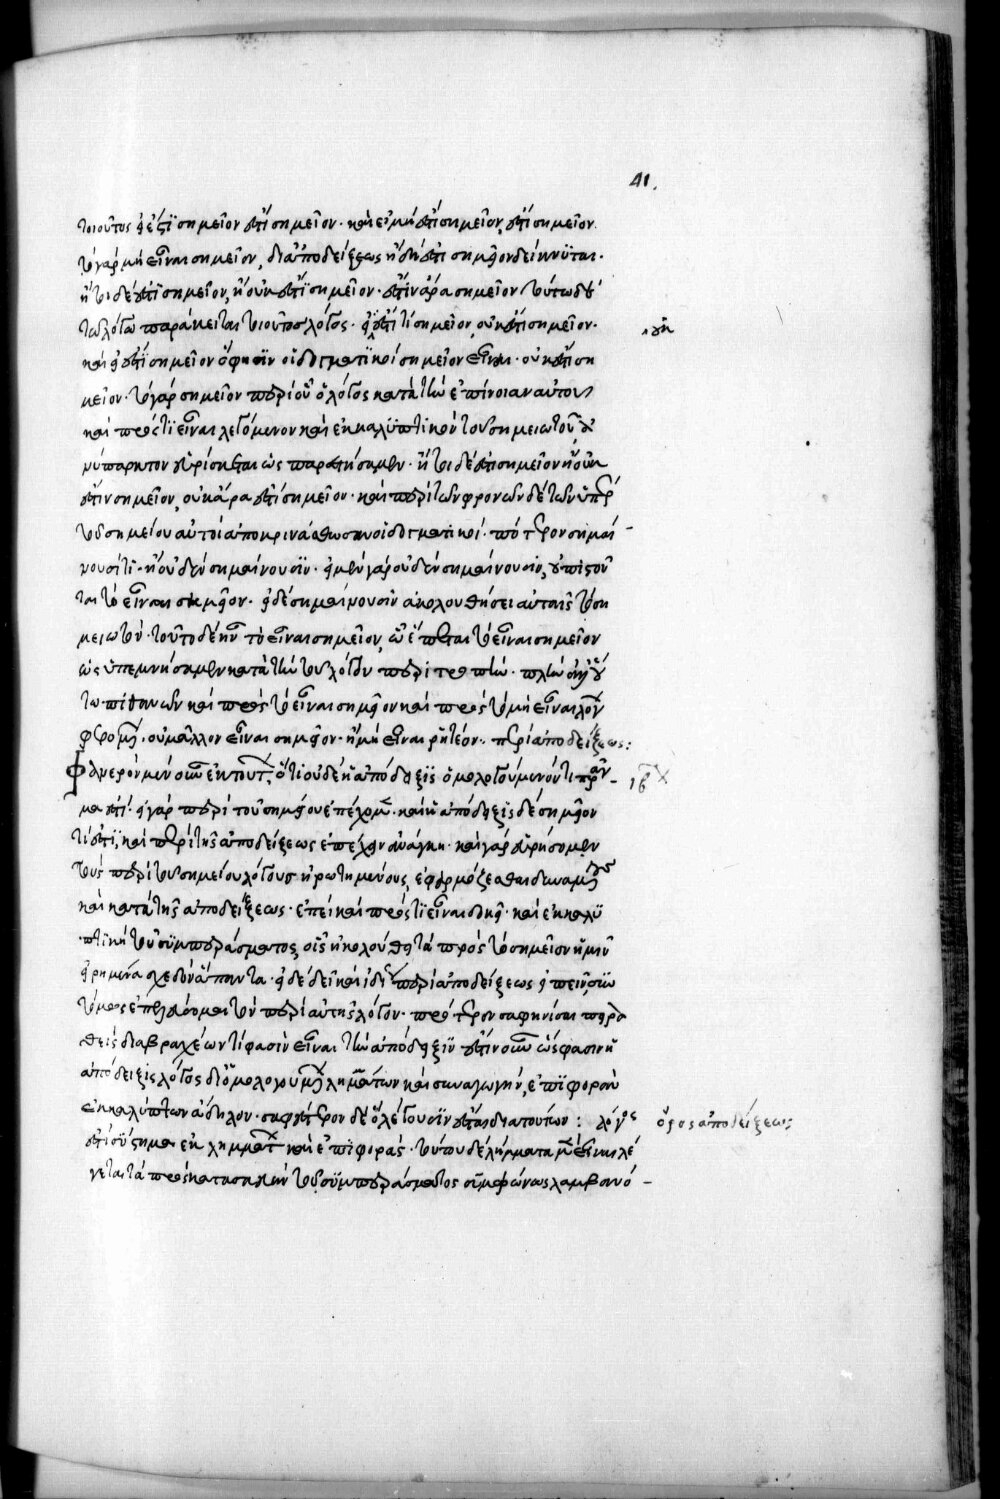 41.
τοιοῦτος εἰ ἔστι σημεῖον ἔστι σημεῖον· καὶ εἰ μή ἐστι σημεῖον, ἔστι σημεῖον.
τὸ γὰρ μὴ εἶναι σημεῖον, διὰ ἀποδείξεως ἤδη ἔστι σημεῖον δείκνυται.
ἤτοι δὲ ἔστι σημεῖον, ἢ οὐκ ἔστι σημεῖον· ἔστιν ἄρα σημεῖον τούτω δὲ
τῶ λόγω παράκειται τοιοῦτος λόγος· εἰ ἔστι τί σημεῖον, οὐκ ἔστι σημεῖον·
καὶ εἰ ἔστι σημεῖον ὅ φησιν οἱ δογματικοὶ σημεῖον εἶναι· οὐκ ἔστι ση
μεῖον· τὸ γὰρ σημεῖον περὶ οὗ ὁ λόγος κατὰ τὴν ἐπίνοιαν αὐτοῦ
καὶ πρός τι εἶναι λεγόμενον καὶ ἐκκαλυπτικὸν τοῦ σημειωτοῦ ἀ
νύπαρκτον εὑρίσκεται ὡς παρεστήσαμεν· ἤτοι δὲ ἔστι σημεῖον ἢ οὐκ
ἔστιν σημεῖον, οὐκ ἄρα ἔστι σημεῖον· καὶ περὶ τῶν φωνῶν δὲ τῶν ὑπὲρ
τοῦ σημείου αὐτοὶ ἀποκρινάσθωσαν οἱ δογματικοί· πότερον σημαί-
νουσί τι· ἢ οὐδὲν σημαίνουσιν· εἰ μὲν γὰρ οὐδὲν σημαίνουσιν,
τὸ εἶναι σημεῖον· εἰ δὲ σημαίνουσιν ἀκολουθήσει αὐταῖς τὸ ση
μειωτόν· τοῦτο δὲ ἦν τὸ εἶναι σημεῖον, ὧ ἕπεται τὸ εἶναι σημεῖον
ὡς ὑπεμνήσαμεν κατὰ τὴν τοῦ λόγου περιτροπήν· πλὴν
τω πιθανῶν καὶ πρὸς τὸ εἶναι σημεῖον καὶ πρὸς τὸ μὴ εἶναι λόγων
φερομένων· οὐ μᾶλλον εἶναι σημεῖον· ἢ μὴ εἶναι ῥητέον. περὶ ἀποδείξεως:
Φανερὸν μὲν οὖν ἐκ τούτων, ὅτι οὐδὲ ἡ ἀπόδειξις ὁμολογούμενόν τι πρᾶγ-
μα ἐστί· εἰ γὰρ περὶ τοῦ σημείου ἐπέχομεν· καὶ ἡ ἀπόδειξις δὲ σημεῖον
τί ἐστι, καὶ περὶ τῆς ἀποδείξεως ἐπέχειν ἀνάγκη· καὶ γὰρ εὑρήσομεν
τοὺς περὶ τοῦ σημείου λόγους ἠρωτημένους, ἐφαρμόζεσθαι δυναμένους
καὶ κατὰ τῆς ἀποδείξεως· ἐπεὶ καὶ πρός τι εἶναι δοκεῖ· καὶ ἐκκαλυ
πτικὴ τοῦ συμπεράσματος, οἷς ἠκολούθει τὰ πρὸς τὸ σημεῖον ἡμῖν
εἰρημένα σχεδὸν ἅπαντα· εἰ δὲ δεῖ καὶ ἰδίως περὶ ἀποδείξεως εἰπεῖν, συν
τόμως ἐπελεύσομαι τὸν περὶ αὐτῆς λόγον· πρότερον σαφηνίσαι πειρα
θεὶς διὰ βραχέων τί φασιν εἶναι τὴν ἀπόδειξιν ἔστιν οὖν ὥς φασιν ἡ
ἀπόδειξις λόγος δι' ὁμολογουμένων λημμάτων κατὰ συναγωγήν, ἐπιφορὰν
ἐκκαλύπτων ἄδηλον· σαφέστερον δὲ ὃ λέγουσιν ἔσται διὰ τούτων: λόγος
ἐστὶ σύστημα ἐκ λημμάτων καὶ ἐπιφορᾶς· τούτου δὲ λήμματα μὲν εἶναι λέ
γεται τὰ πρὸς κατασκευὴν τοῦ συμπεράσματος συμφώνως λαμβανό-
ὅρος ἀποδείξεως